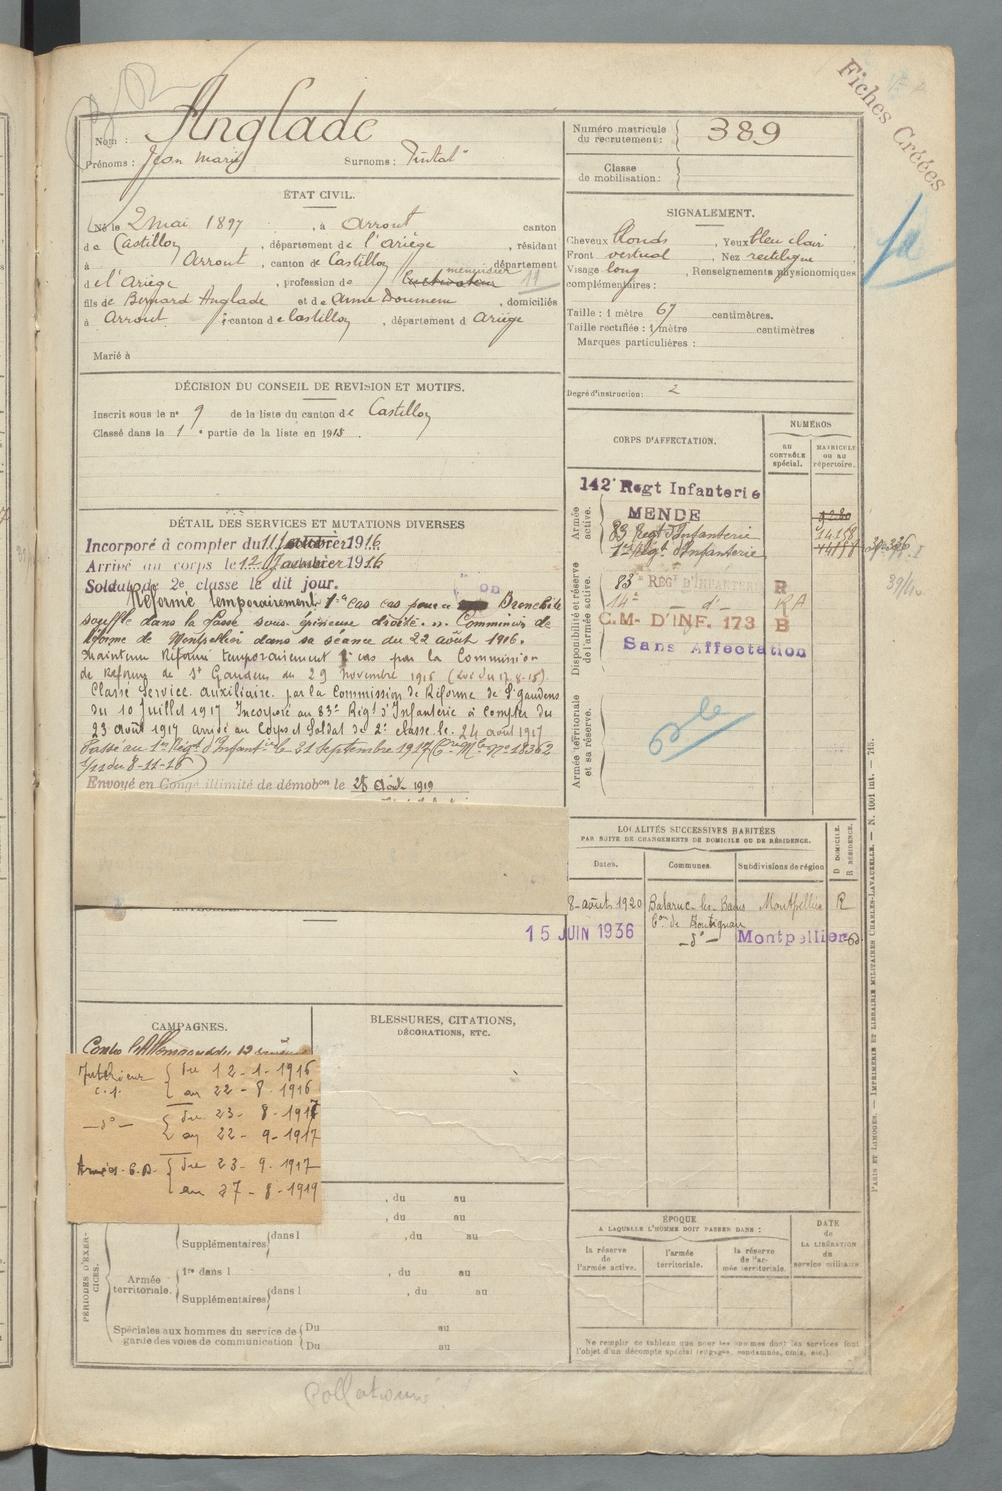 Fiches Créées
Nom : Anglade
Prénoms : Jean Marie Surnoms : "Pintat"
Numéro matricule du recrutement : 389
Classe de mobilisation :
ÉTAT CIVIL.
Né le 2 mai 1897, à Arrout canton
de Castillon, département de l'Ariège, résidant
à Arrout, canton de Castillon département
d e l'Ariège, profession de Cultivateur menuisier 11
fils de Bernard Anglade et de Anne Doumenc, domiciliés
à Arrout, canton de Castillon, département d Ariège
Marié à
SIGNALEMENT.
Cheveux blonds, Yeux bleu clair,
Front vertical, Nez rectiligne
Visage long, Renseignements physionomiques
complémentaires :
Taille : 1 mètre 67 centimètres.
Taille rectifiée : 1 mètre centimètres
Marques particulières :
Degré d'instruction : 2
DÉCISION DU CONSEIL DE REVISION ET MOTIFS.
Inscrit sous le n° 9 de la liste du canton de Castillon
Classé dans la 1e partie de la liste en 1915.
DÉTAIL DES SERVICES ET MUTATIONS DIVERSES
Incorporé à compter du 11 Janvier 1916
Arrivé au corps le 12 Janvier 1916
Soldat de 2e classe le dit jour.
Réformé temporairement 1er cas pour Bronchite
souffle dans la fosse sous-épineuse droite. Commission de
Réforme de Montpellier dans sa séance du 22 août 1916.
Maintenu Réformé temporairement 1er cas par la Commission
de Réforme de St Gaudens du 29 novembre 1916 (Loi du 17-8-15).
Classé Service auxiliaire par la Commission de Réforme de St Gaudens
du 10 juillet 1917. Incorporé au 83e Régt d'Infanterie à compter du
23 août 1917 arrivé au Corps et Soldat de 2e classe le 24 août 1917
Passé au 1er Régt d'Infanterie le 21 Septembre 1917 (Cre Mlle N° 18362
1/11 du 8-11-16)
Envoyé en Congé illimité de démobon le 28 Août 1919
CORPS D'AFFECTATION.
NUMÉROS
au contrôle spécial.
matricule ou au répertoire.
Armée active.
142e Regt Infanterie
MENDE
83 Régt d'Infanterie 14158
1er Régt d'Infanterie
Disponibilité et réserve de l'armée active.
83e REGt D'INFANTERIE R
14e — do — RA
C.M. D'INF. 173 B
Sans Affectation
Armée territoriale et sa réserve.
LOCALITÉS SUCCESSIVES HABITÉES
PAR SUITE DE CHANGEMENTS DE DOMICILE OU DE RÉSIDENCE.
Dates. Communes. Subdivisions de région D DOMICILE. R RÉSIDENCE.
8 août 1920 Balaruc-les-Bains Montpellier R
15 JUIN 1936 — do — Montpellier
CAMPAGNES.
Contre l'Allemagne du 12
Intérieur { du 12-1-1916
C.S. au 22-8-1916
— do — { du 23-8-1917
au 22-9-1917
Armées { du 23-9-1917
au 27-8-1919
BLESSURES, CITATIONS,
DÉCORATIONS, ETC.
PÉRIODES D'EXERCICES.
, du au
, du au
Supplémentaires { dans l , du au
Armée territoriale.
1re dans l , du au
Supplémentaires { dans l , du au
Spéciales aux hommes du service de garde des voies de communication
Du au
Du au
ÉPOQUE
A LAQUELLE L'HOMME DOIT PASSER DANS :
la réserve de l'armée active.
l'armée territoriale.
la réserve de l'armée territoriale.
DATE de LA LIBÉRATION du service militaire
Ne remplir ce tableau que pour les hommes dont les services font
l'objet d'un décompte spécial (engagés, condamnés, omis, etc.).
PARIS ET LIMOGES. — IMPRIMERIE ET LIBRAIRIE MILITAIRES CHARLES-LAVAUZELLE. — N. 1001 int. — 715.
Collationné